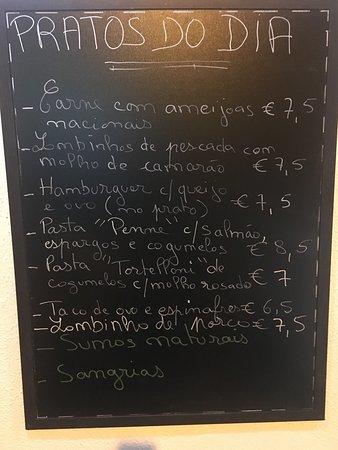 PRATOS DO DIA
- Carne com ameijoas € 7,5
nacionais
- Lombinhos de pescada com
molho de camarão € 7,5
- Hamburguer c/queijo
e ovo (no prato) € 7,5
- Pasta "Penne" c/Salmão,
espargos e cogumelos € 8,5
- Pasta "Tortelloni" de
cogumelos c/molho rosado € 7
- Taco de ovo e espinafres € 6,5
- Lombinho de Porco € 7,5
- Sumos naturais
- Sangrias